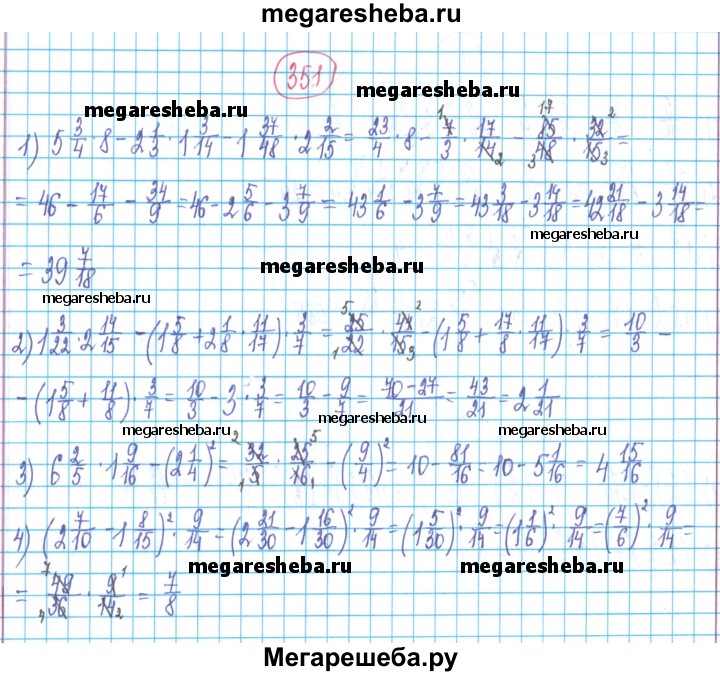 megaresheba.ru
351
megaresheba.ru
megaresheba.ru
1) 5 3/4 · 8 - 2 1/3 · 1 3/14 - 1 37/48 · 2 2/15 = 23/4 · 8 - 7/3 · 17/14 - 85/48 · 32/15 =
= 46 - 17/6 - 34/9 = 46 - 2 5/6 - 3 7/9 = 43 1/6 - 3 7/9 = 43 3/18 - 3 14/18 = 42 21/18 - 3 14/18 =
megaresheba.ru
= 39 7/18
megaresheba.ru
megaresheba.ru
2) 1 3/22 · 2 14/15 - (1 5/8 + 2 1/8 · 11/17) · 3/7 = 25/22 · 44/15 - (1 5/8 + 17/8 · 11/17) · 3/7 = 10/3 -
- (1 5/8 + 11/8) · 3/7 = 10/3 - 3 · 3/7 = 10/3 - 9/7 = 70-27/21 = 43/21 = 2 1/21
megaresheba.ru
megaresheba.ru
megaresheba.ru
3) 6 2/5 · 1 9/16 - (2 1/4)² = 32/5 · 25/16 - (9/4)² = 10 - 81/16 = 10 - 5 1/16 = 4 15/16
4) (2 7/10 - 1 8/15)² · 9/14 = (2 21/30 - 1 16/30)² · 9/14 = (1 5/30)² · 9/14 = (1 1/6)² · 9/14 = (7/6)² · 9/14 =
megaresheba.ru
megaresheba.ru
= 49/36 · 9/14 = 7/8
Мегарешеба.ру